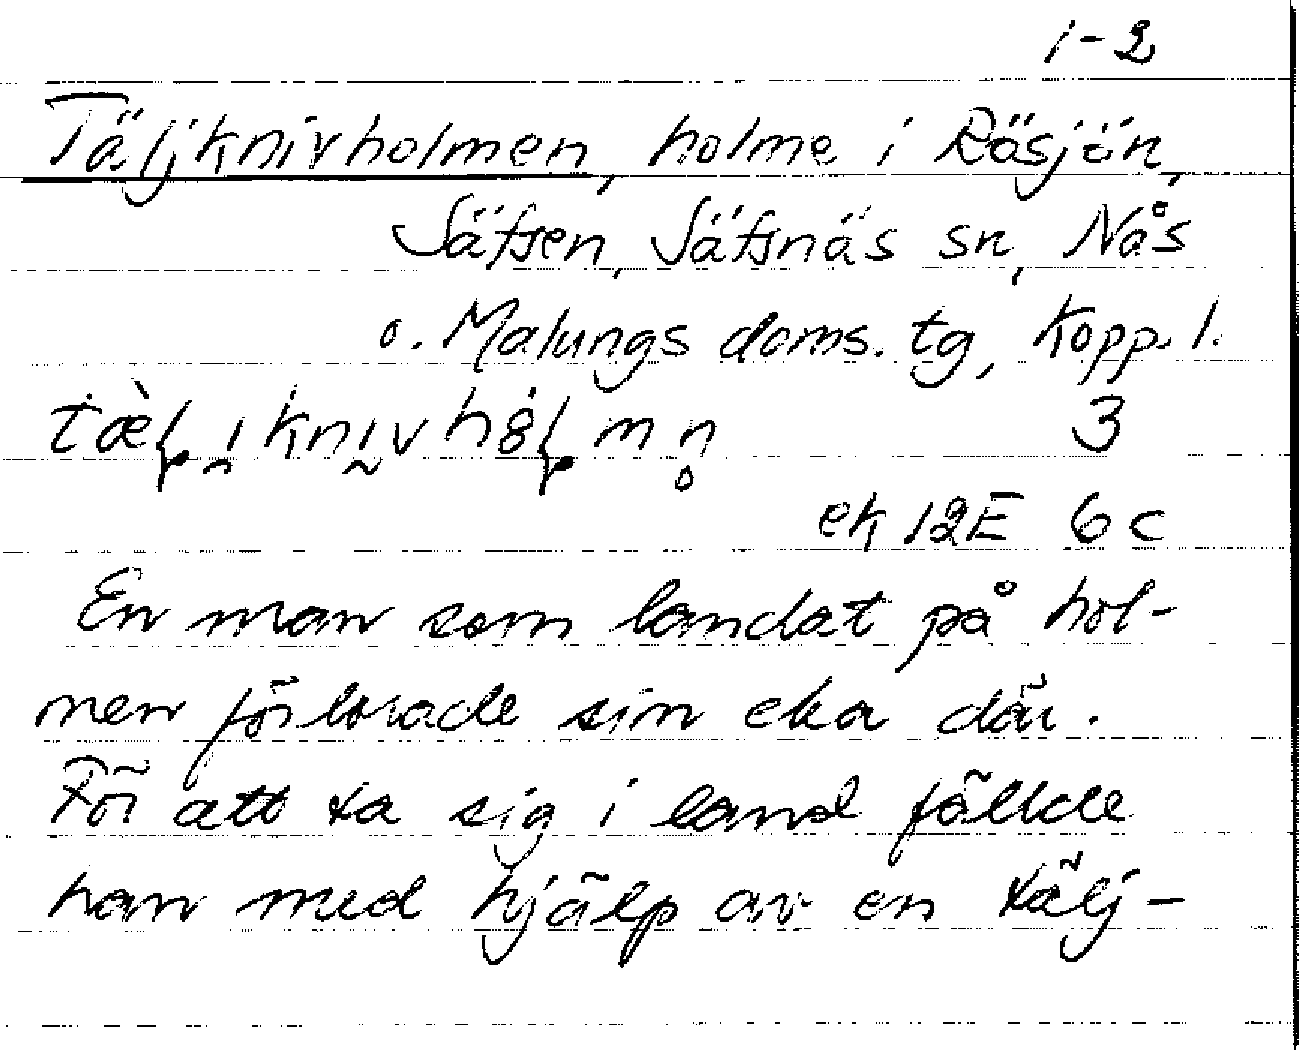 1-2
Täljknivholmen, holme i Räsjön,
Säfsen, Säfsnäs sn, Nås
o. Malungs doms. tg, Kopp. l.
3
ek 12E 6c
En man som landat på hol-
men förlorade sin eka där.
För att ta sig i land fällde
han med hjälp av en tälj-